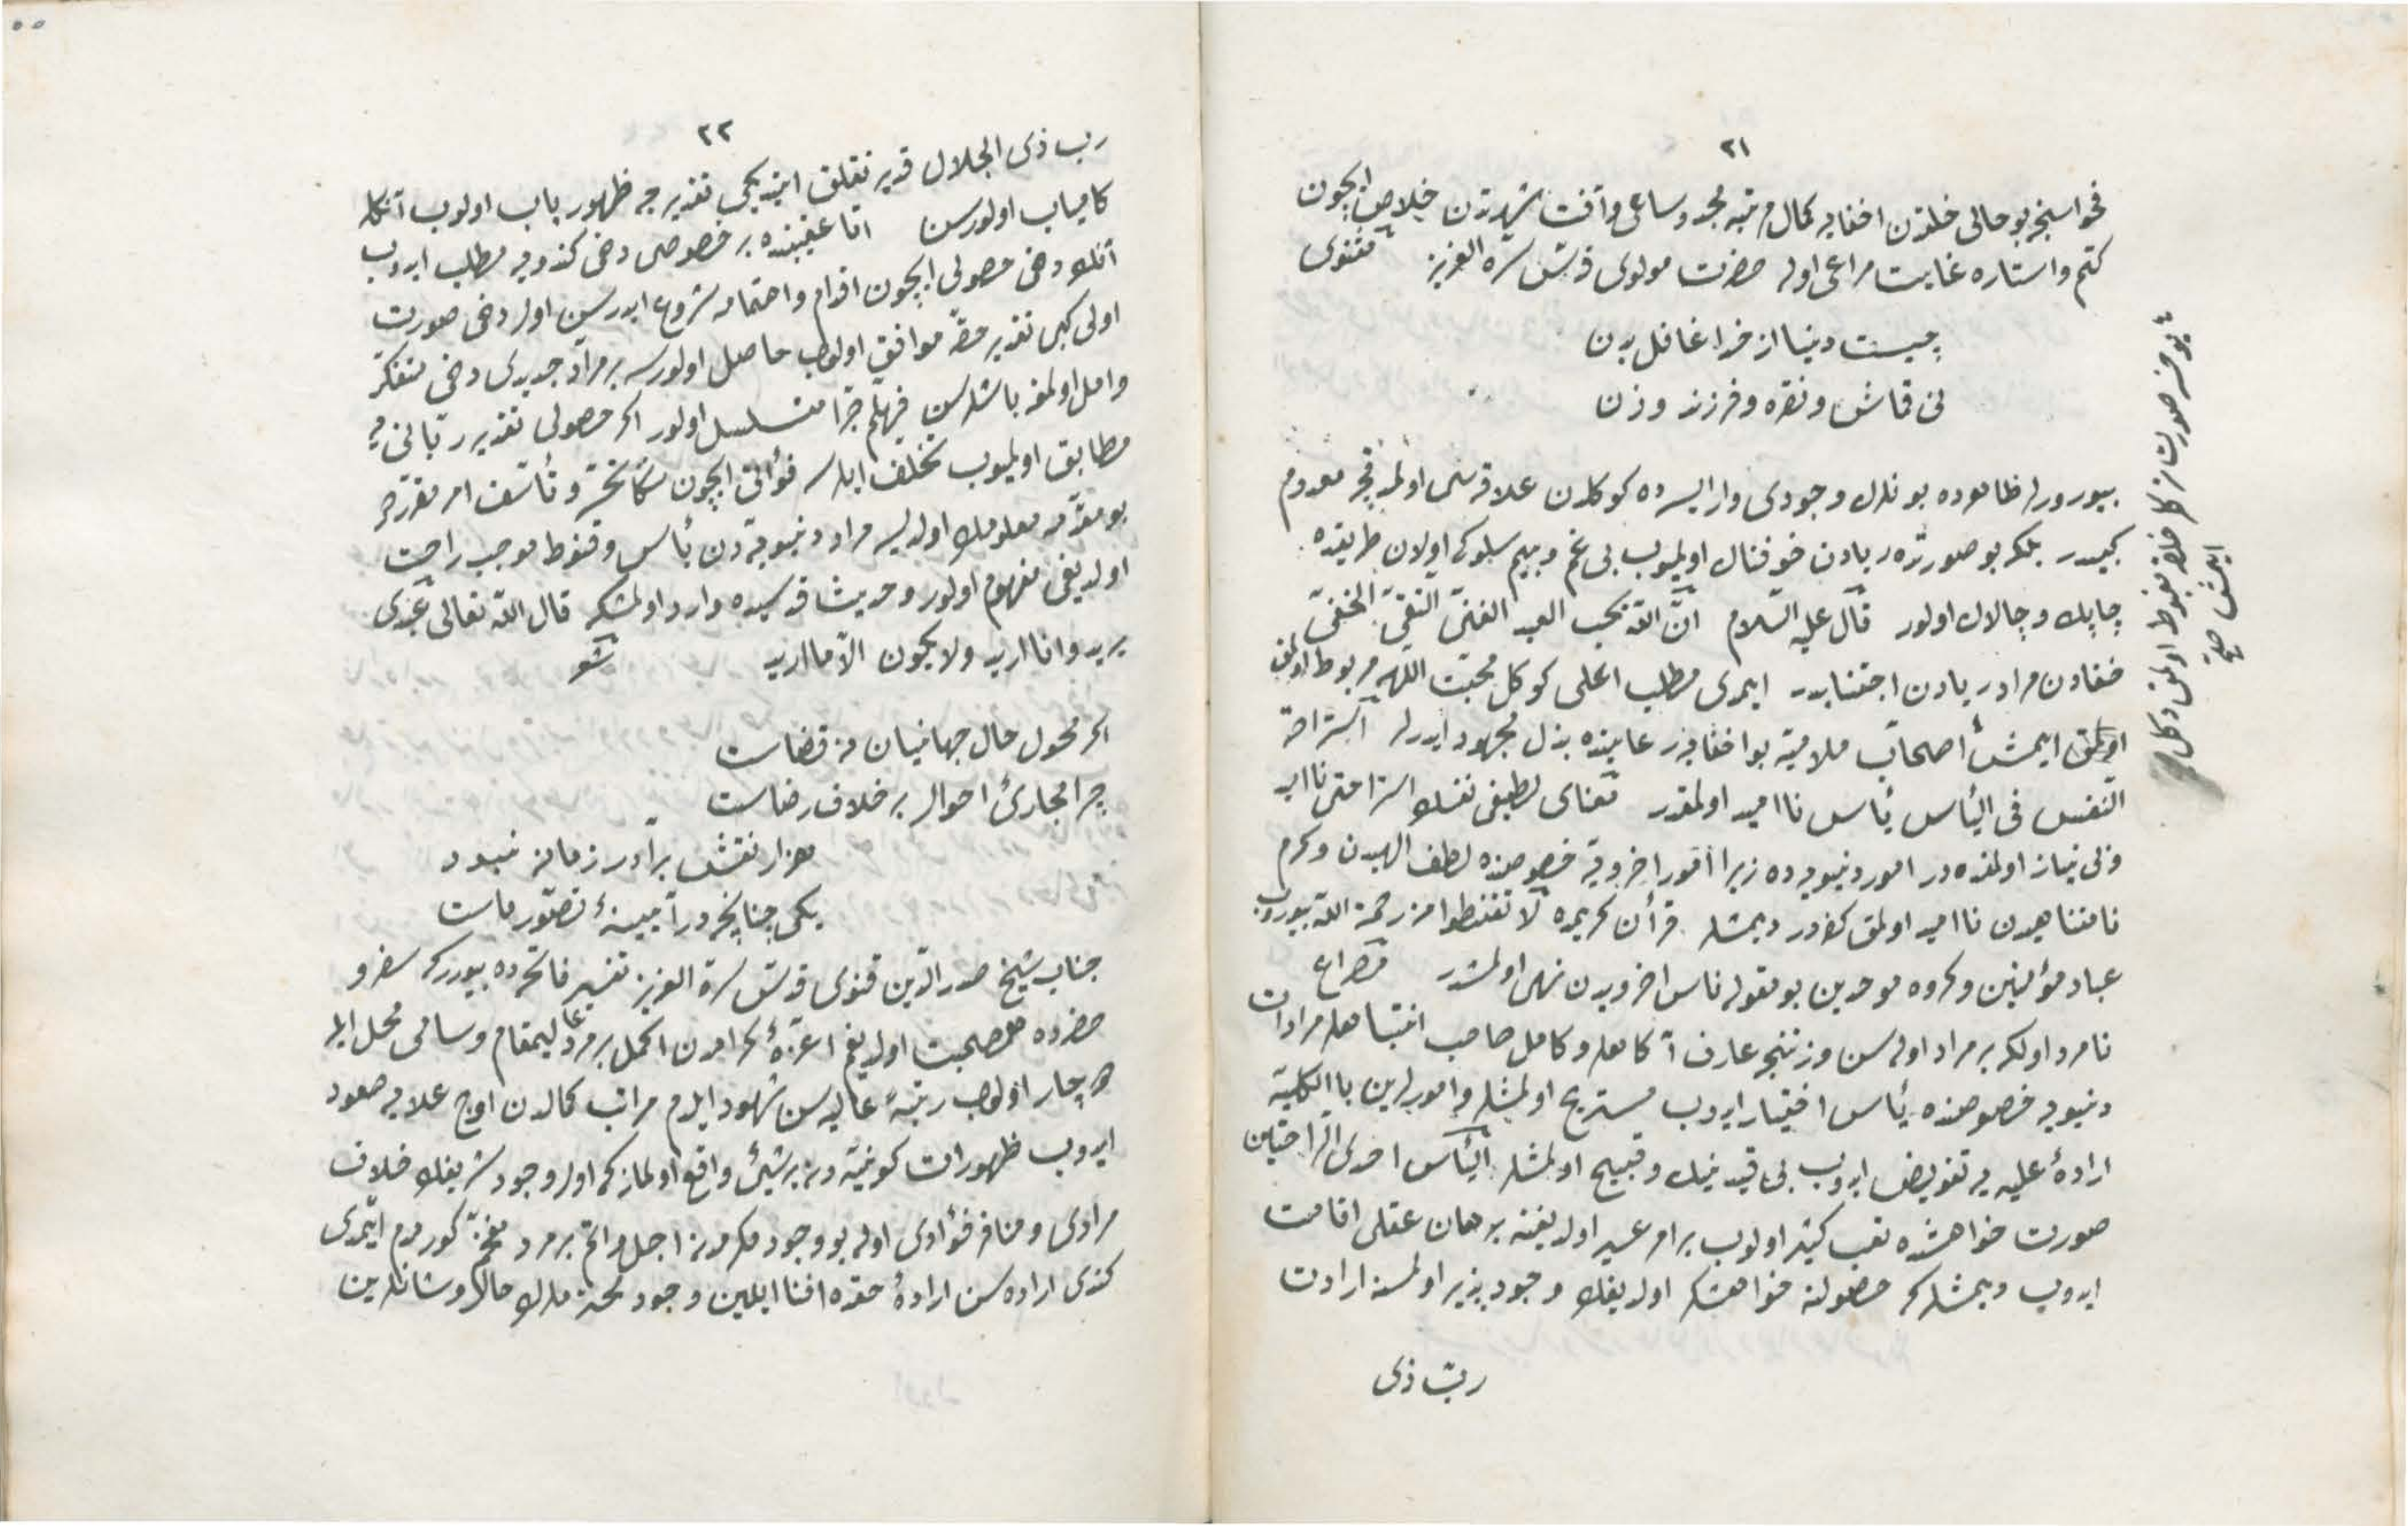 ٢١
فحواسنجه بو حالی خلقدن اخفایه کمال مرتبه مجد و ساعی و آفت شهرتدن خلاص ایچون
کتم و استاره غایت مراعی اوله حضرت مولوی قدس سره العزیز مثنوی
چیست دنیا از خدا غافل بدن
نی قماش و نقره و فرزند و زن
بیورورلر ظاهرده بونلرك وجودی وار ایسه ده کوکلدن علاقه سی اولمدقجه معدوم
کبیدر بلکه بو صورتده ریادن خوفناك اولمیوب بی غم و بیم سلوکی اولان طریقده
چابك و چالاك اولور قال علیه السلام ان الله یحب العبد الغنی التقی الخفی
خفادن مراد ریادن اجتنابدر ایمدی مطلب اعلی کوکل محبت اللهه مربوط اولمق
اولمق ایمش اصحاب ملامیه بو اخفایه رعایتده بذل مجهود ایدرلر استراحة
النفس فی الیأس یأس ناامید اولمقدر معنای لطیفی نفسك استراحتی ناامید
و بی نیاز اولمقده در امور دنیویه ده زیرا امور اخرویه خصوصنده لطف الهیدن و کرم
نامتناهیدن ناامید اولمق کفردر دیمشلر قرآن کریمده لا تقنطوا من رحمة الله بیوروب
عباد مؤمنین و کروه موحدین بو مقوله یأس اخرویدن نهی اولمشدر مصراع
نامراد اولکه بر مراد اوله سن وزننجه عارف آکاهلر و کامل صاحب انتباهلر مرادات
دنیویه خصوصنده یأس اختیار ایدوب مستریح اولمشلر و امورلرین بالکلیه
ارادهٔ علیه یه تفویض ایدوب بی قید نیك و قبیح اولمشلر الیأس احدی الراحتین
صورت خواهشده تعب کثیر اولوب بر امر عسیر اولدیغنه برهان عقلی اقامت
ایدوب دیمشلر که حصولنه خواهشکر اولدیغك وجودپذیر اولمسنه ارادت
رب ذی
بوخسه صورتا ترك خلقه مغبوط اولمق دکل
ایمش صح
٢٢
رب ذی الجلال قدیر تعلق ایتدیکی تقدیرجه ظهوریاب اولوب آنکله
کامیاب اولورسن اما عقبنده بر خصوصی دخی کندویه مطلب ایدوب
آنك دخی حصولی ایچون اقدام و اهتمامه شروع ایدرسن اول دخی صورت
اولی کبی تقدیر حقه موافق اولوب حاصل اولورسه بر مراد جدیدی دخی متفکر
و امل اولمغه باشلرسن فهلم جرا متسلسل اولور اکر حصولی تقدیر ربانی یه
مطابق اولمیوب تخلف ایدرسه فواتی ایچون سکا تحسر و تأسف امر مقرردر
بو مقدمه معلومك اولدیسه مراد دنیویه دن یأس و قنوط موجب راحت
اولدیغی مفهوم اولور و حدیث قدسیده وارد اولمشکه قال الله تعالی عبدی
یرید و انا ارید ولا یکون الا ما ارید شعر
اکر محول حال جهانیان نه قضاست
چرا مجارئ احوال بر خلاف رضاست
هزار نقش برآرد زمانه نبود
یکی چنانچه در آیینهٔ تصور ماست
جناب شیخ صدر الدین قنوی قدس سره العزیز تفسیر فاتحه ده بیوررکه سفر و
حضرده هم صحبت اولدیغم اعزهٔ کرامدن اکمل بر مرد عالیمقام و سامی محل ایله
دچار اولوب رتبهٔ عالیه سن شهود ایلدم مراتب کمالدن اوج علایه صعود
ایدوب ظهورات کونیه دن بر شیئ واقع اولمازکه اول وجود شریفك خلاف
مرادی و منافر فؤادی اوله بو وجود مکرمدن اجل و اتم بر مرد مفخم کورمدم ایمدی
کندی اراده سن ارادهٔ حقده افنا ایلمین وجود محنت مدارك حالا و شانلرین